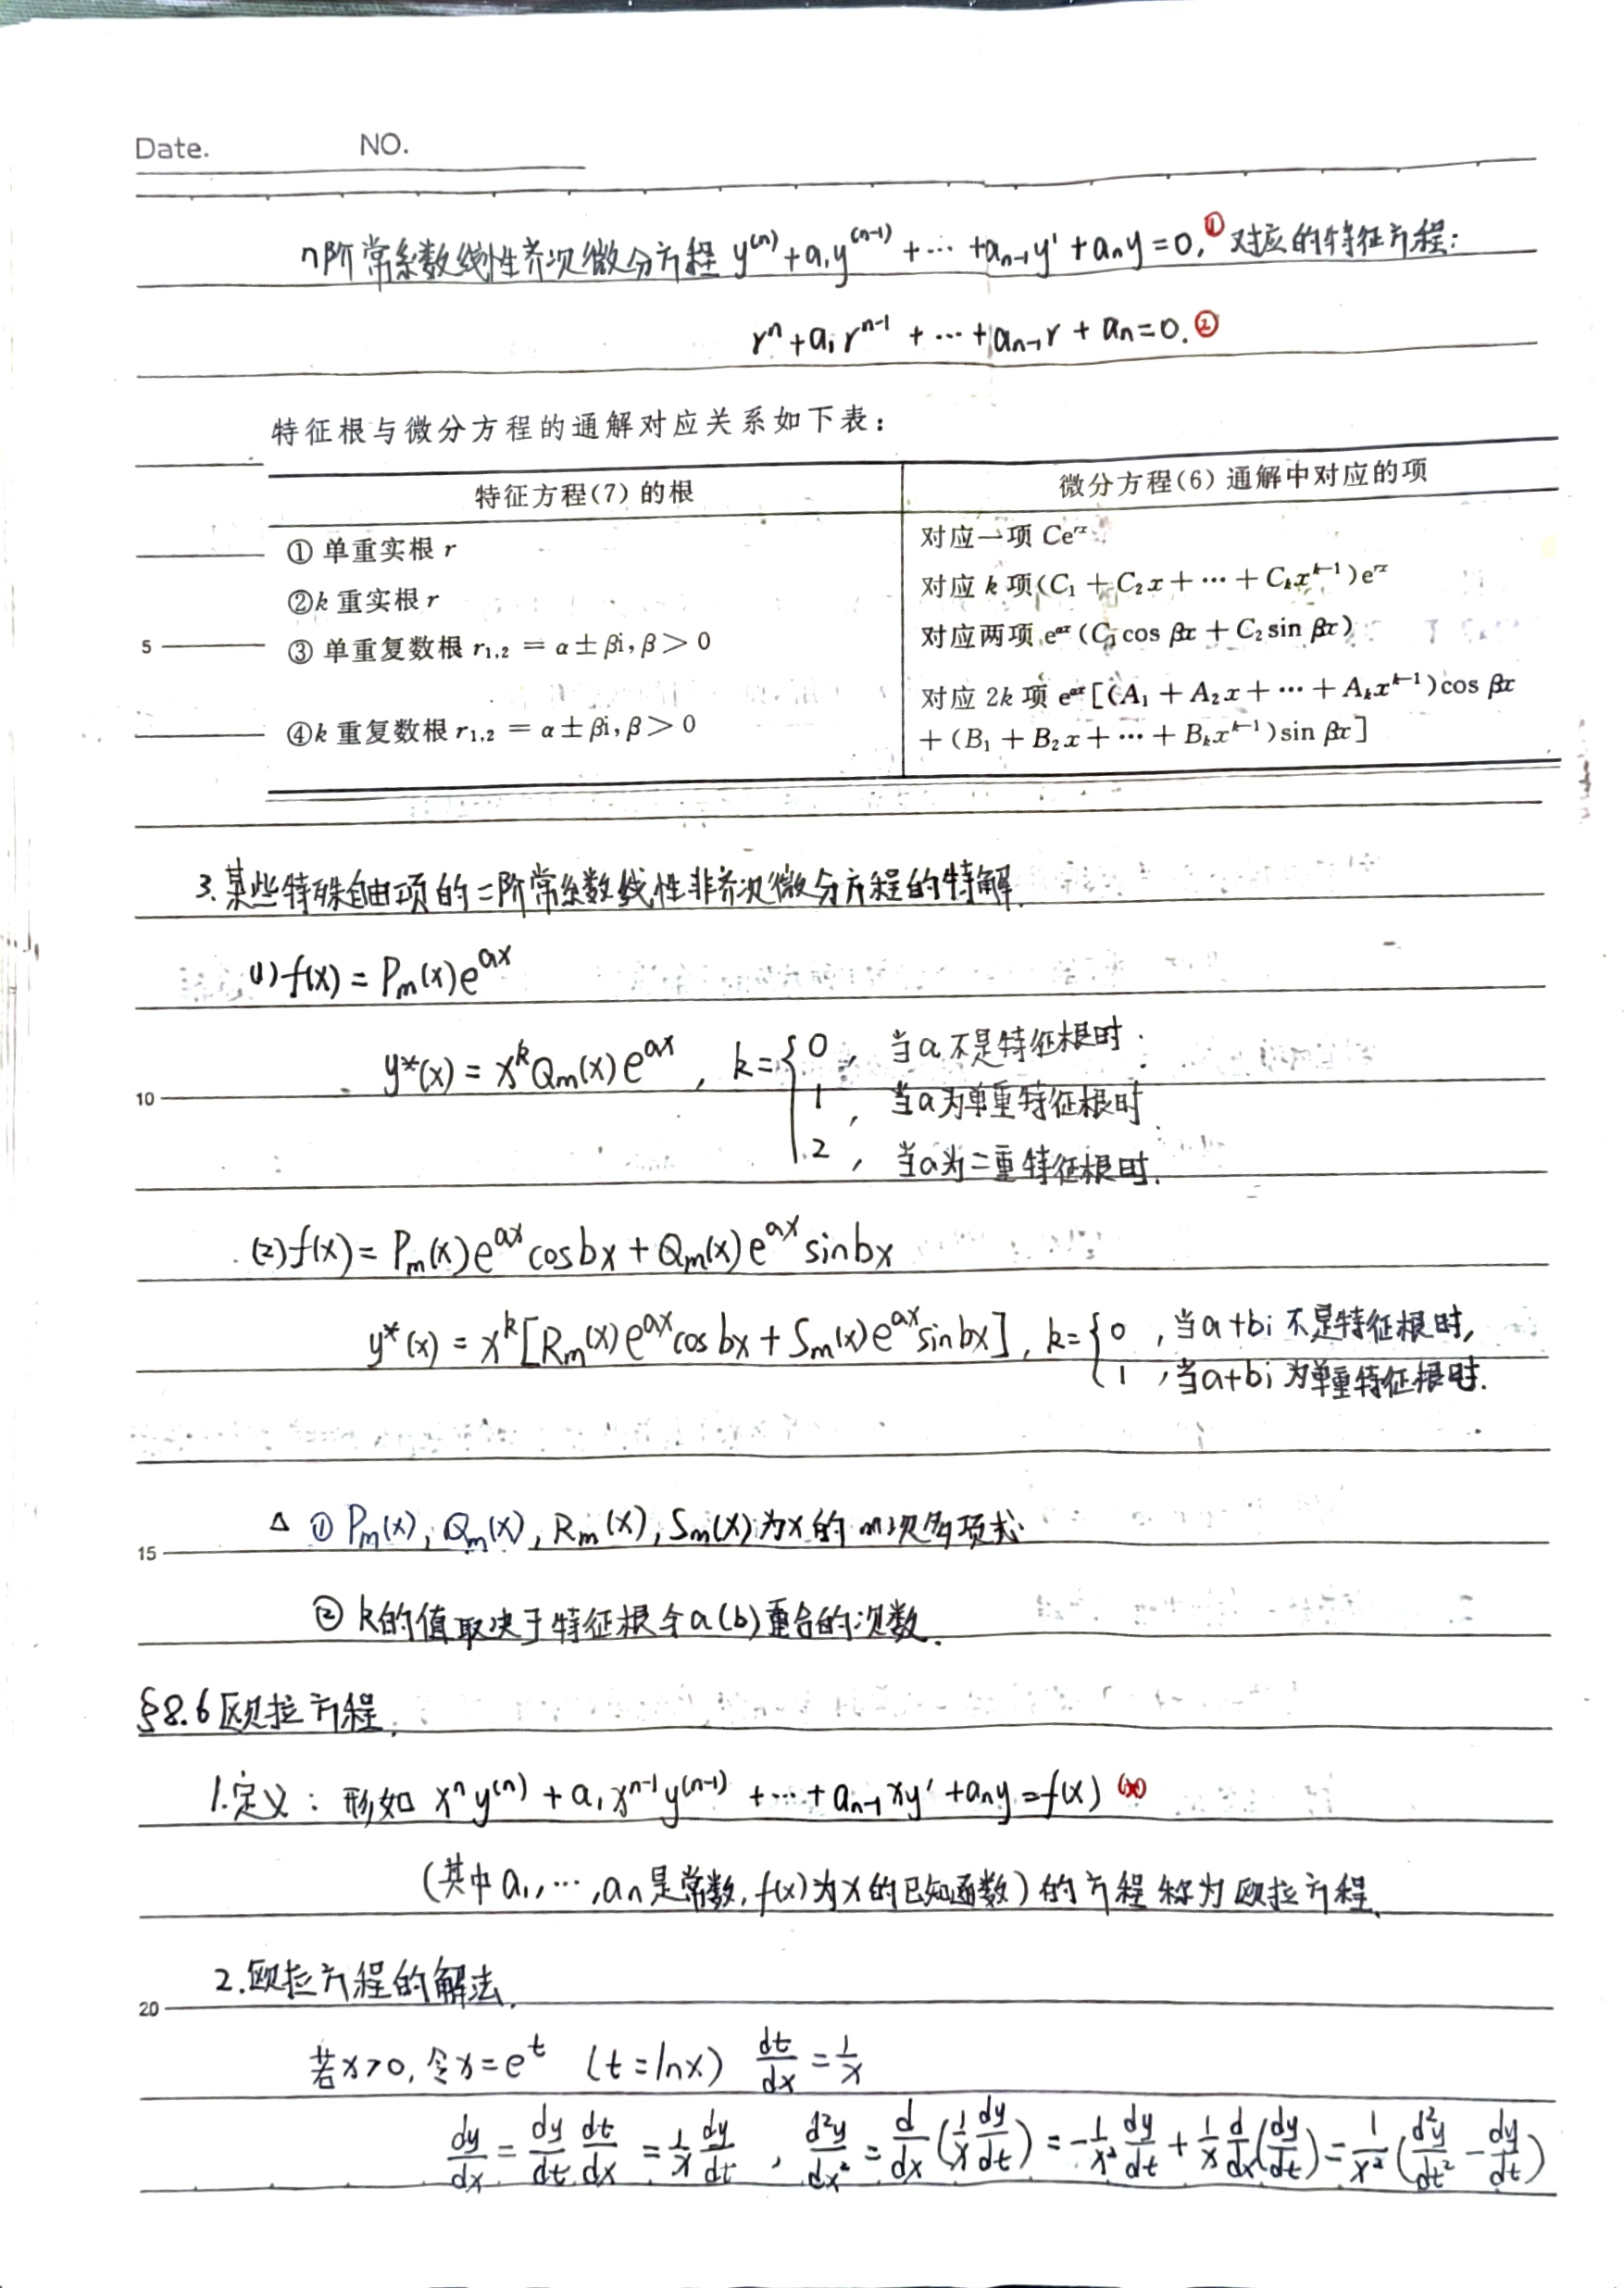 Date. NO.
n阶常系数线性齐次微分方程 y⁽ⁿ⁾+a₁y⁽ⁿ⁻¹⁾+⋯+aₙ₋₁y'+aₙy=0,① 对应的特征方程:
rⁿ+a₁rⁿ⁻¹+⋯+aₙ₋₁r+aₙ=0.②
特征根与微分方程的通解对应关系如下表:
特征方程(7)的根 微分方程(6)通解中对应的项
① 单重实根 r 对应一项 Ceʳˣ
②k 重实根 r 对应 k 项(C₁+C₂x+⋯+Cₖxᵏ⁻¹)eʳˣ
5 ③ 单重复数根 r₁,₂ = α±βi,β>0 对应两项 e^{αx}(C₁cos βx+C₂sin βx)
④k 重复数根 r₁,₂ = α±βi,β>0 对应 2k 项 e^{αx}[(A₁+A₂x+⋯+Aₖxᵏ⁻¹)cos βx
+(B₁+B₂x+⋯+Bₖxᵏ⁻¹)sin βx]
3.某些特殊自由项的二阶常系数线性非齐次微分方程的特解.
(1)f(x)=Pₘ(x)e^{ax}
y*(x)=xᵏQₘ(x)e^{ax}, k={0, 当a不是特征根时.
10 1, 当a为单重特征根时.
2, 当a为二重特征根时.
(2)f(x)=Pₘ(x)e^{ax}cosbx+Qₘ(x)e^{ax}sinbx
y*(x)=xᵏ[Rₘ(x)e^{ax}cosbx+Sₘ(x)e^{ax}sinbx], k={0,当a+bi不是特征根时,
1,当a+bi为单重特征根时.
15 △ ①Pₘ(x),Qₘ(x),Rₘ(x),Sₘ(x)为x的m次多项式.
②k的值取决于特征根令a(b)重合的次数.
§8.6欧拉方程.
1.定义:形如 xⁿy⁽ⁿ⁾+a₁xⁿ⁻¹y⁽ⁿ⁻¹⁾+⋯+aₙ₋₁xy'+aₙy=f(x) (*)
(其中a₁,⋯,aₙ是常数,f(x)为x的已知函数)的方程称为欧拉方程.
20 2.欧拉方程的解法.
若x>0,令x=eᵗ (t=lnx) dt/dx=1/x
dy/dx=dy/dt dt/dx=1/x dy/dt, d²y/dx²=d/dx(1/x dy/dt)=-1/x² dy/dt+1/x d/dx(dy/dt)=1/x²(d²y/dt²-dy/dt)